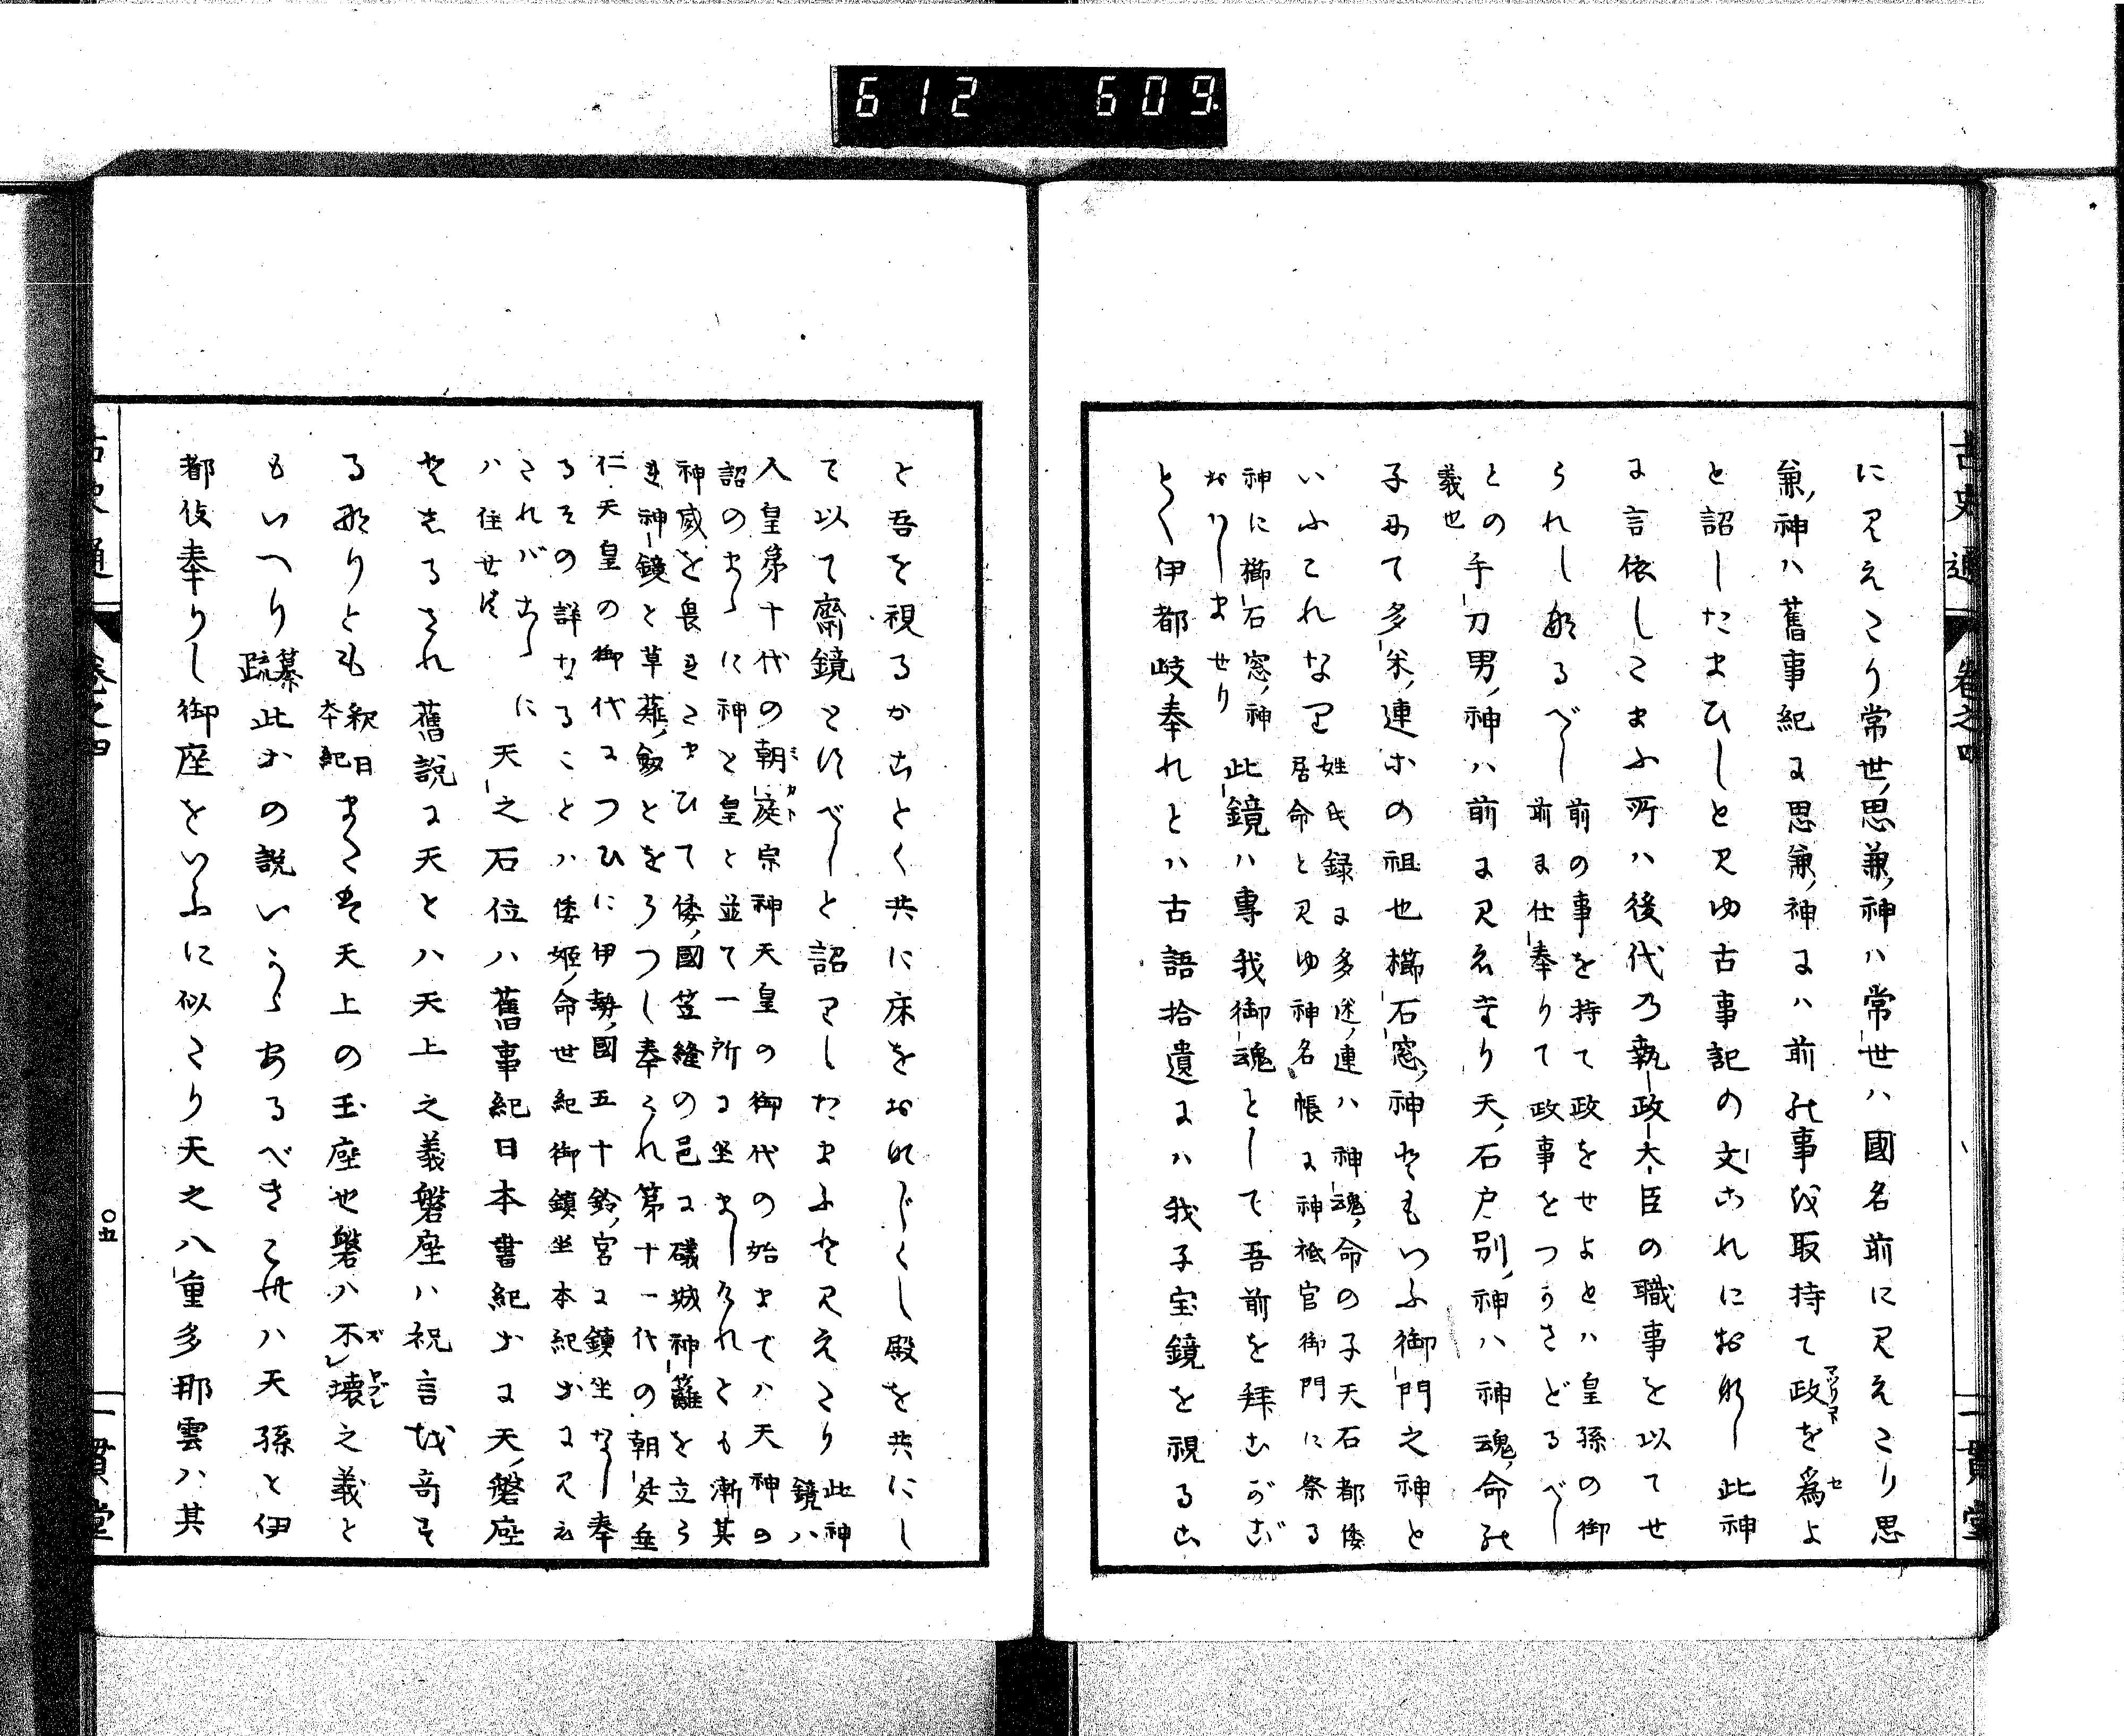 612 609
古史通 卷之四 一貫堂
に見えたり常世思兼神ハ常世ハ國名前に見えたり思
兼神ハ舊事紀に思兼神にハ前の事を取持て政を爲よ
マツリコト セ
と詔したまひしと見ゆ古事記の文これにおなし此神
に言依したまふ所ハ後代の執政大臣の職事を以てせ
られしなるべし
前の事を持て政をせよとハ皇孫の御
前に仕奉りて政事をつかさどるべし
との
義也
手力男神ハ前に見え
たり天石戸別神ハ神魂命の
子にて多米連等の祖也櫛石窓神ともいふ御門之神と
いふこれなり
姓氏録に多米連ハ神魂命の子天石都倭
居命と見ゆ神名帳に神祇官御門に祭る
神に櫛石窓神
おハしませり
此鏡ハ專我御魂として吾前を拜むがご
とく伊都岐奉れとハ古語拾遺にハ我子宝鏡を視るこ
と吾を視るかことく共に床をおなじくし殿を共にし
て以て齋鏡とすべしと詔りしたまふと見えたり
此神
鏡ハ
人皇第十代の朝庭宗神天皇の御代の始まてハ天神の
ミカト
詔のまゝに神と皇と並て一所に坐ましけれとも漸其
神威を畏れたまひて倭國笠縫の邑に磯城神籬を立ら
れ神鏡と草薙劔とをうつし奉られ第十一代の朝廷垂
仁天皇の御代につひに伊勢國五十鈴宮に鎮坐なし奉
るその詳なることハ倭姫命世紀御鎮坐本紀等に見え
たれバこゝに
ハ注せず
天之石位ハ舊事紀日本書紀等に天磐座
としるされ舊説に天とハ天上之義磐座ハ祝言
るなりとも
釈日
本紀
または天上の玉座也磐ハ不壊之義と
もいへり
纂
疏
此等の説いかゝあるべきこれハ天孫と伊
都伎奉りし御座をいふに似たり天之八重多那雲ハ其
古史通 卷之四 〇五 一貫堂